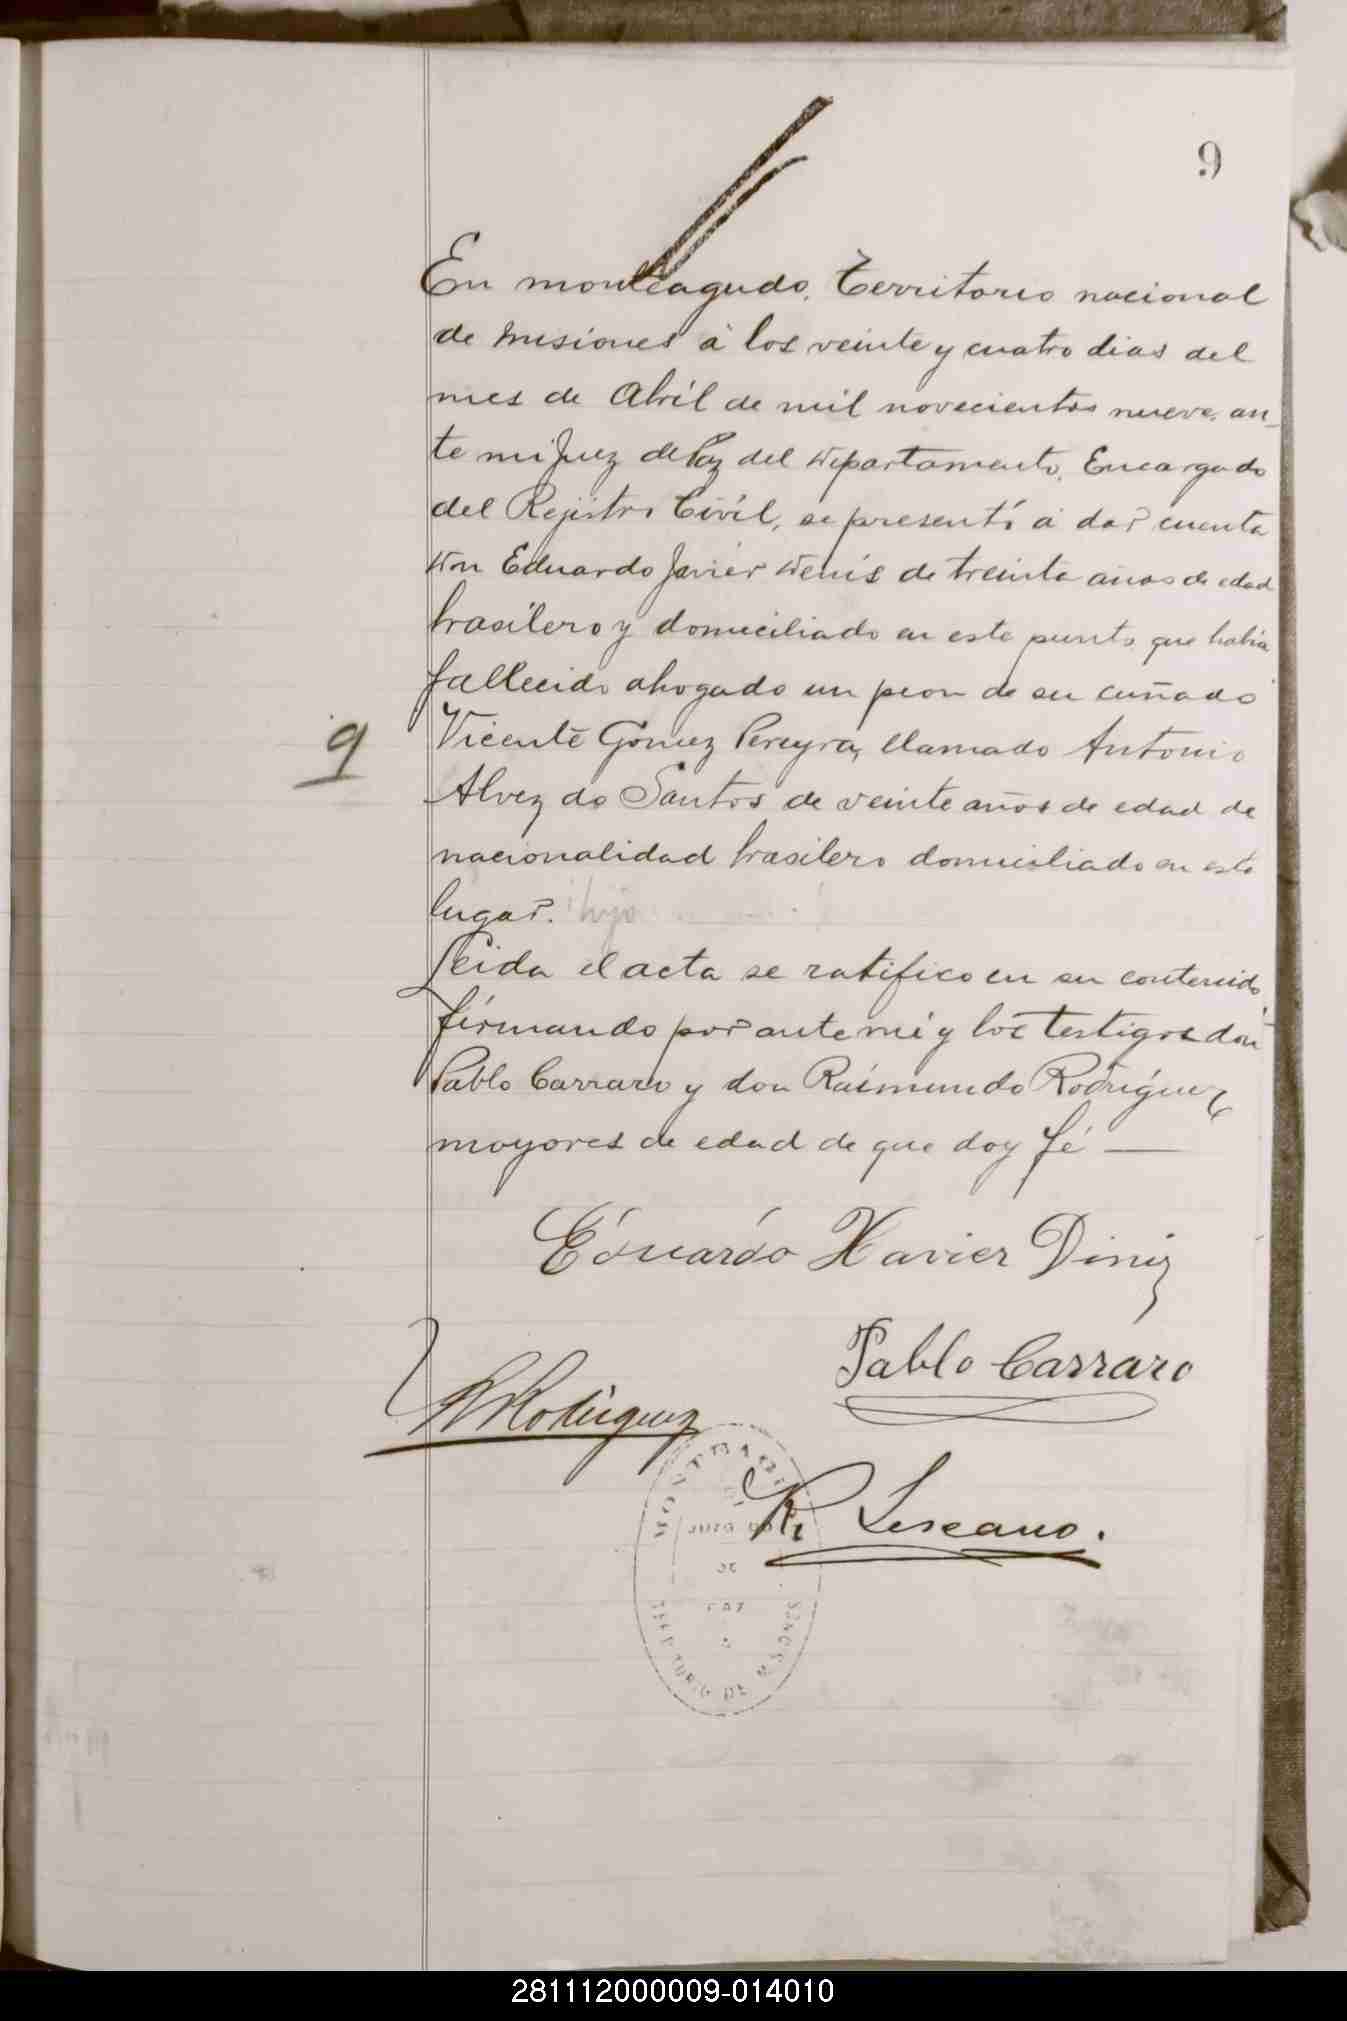 9
En monteagudo, Territorio nacional
de misiones á los veinte y cuatro dias del
mes de Abril de mil novecientos nueve, an-
te mi Juez de Paz del Departamento, Encargado
del Rejistro Civil, se presentó á dar cuenta
Don Eduardo Javier Denis de treinta años de edad
brasilero y domiciliado en este punto, que habia
fallecido ahogado un peon de su cuñado
9
Vicente Gomez Pereyra, llamado Antonio
Alvez do Santos de veinte años de edad de
nacionalidad brasilero domiciliado en este
lugar. hijo
Leida el acta se ratifico en su contenido
firmando por ante mi y los testigos don
Pablo Carraro y don Raimundo Rodriguez
mayores de edad de que doy fé —
Eduardo Xavier Diniz
Pablo Carraro
R Rodriguez
R. Lescano.
MONTEAGUDO
JUZGADO
DE
PAZ
TERRITORIO DE MISIONES
281112000009-014010